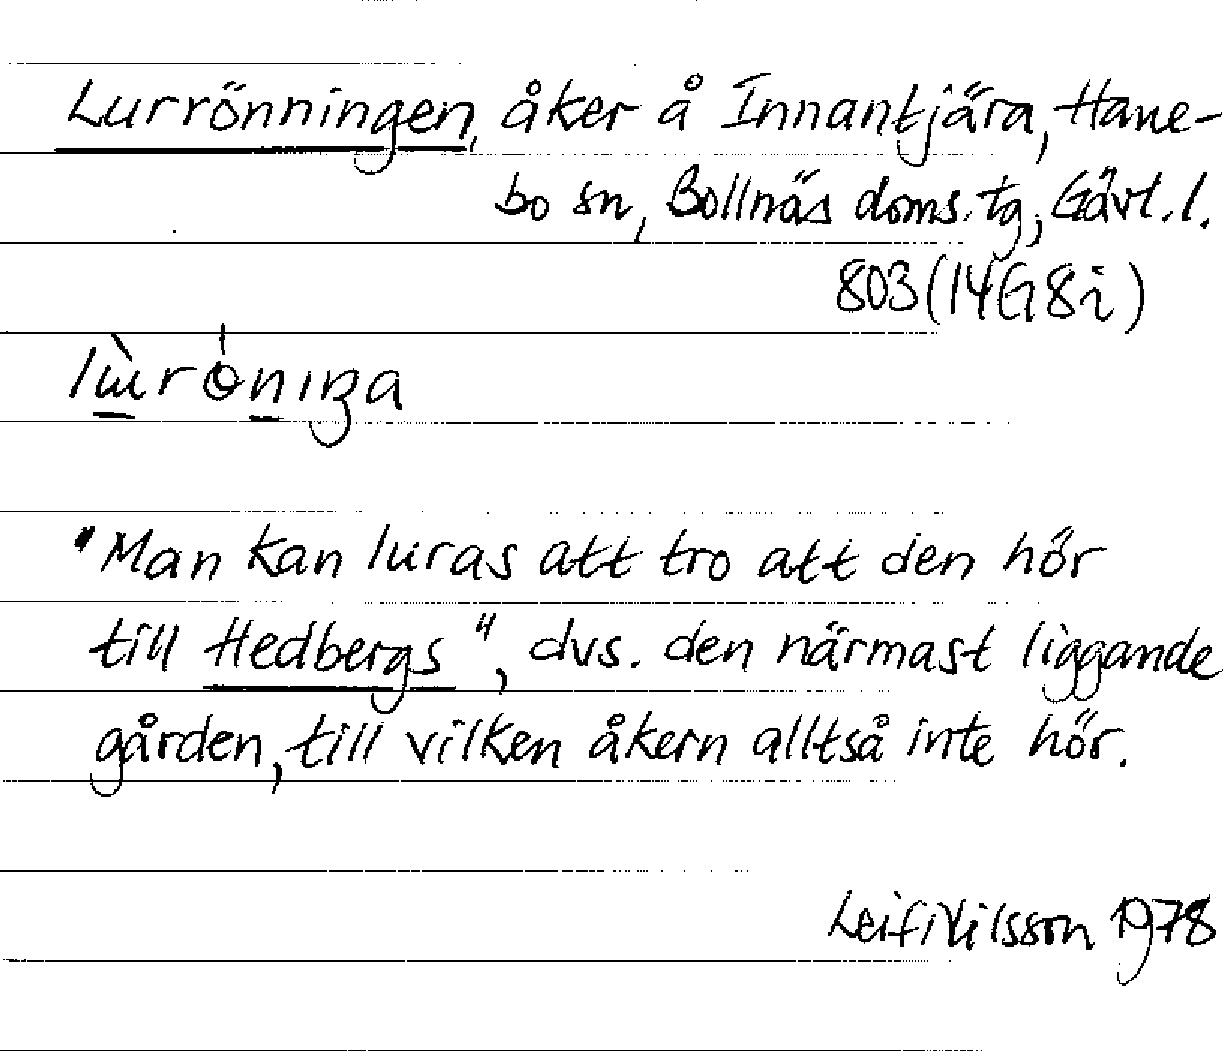 Lurrönningen, åker å Innantjära, Hane-
bo sn, Bollnäs doms.tg, Gävl.l.
803(14G8i)
"Man kan luras att tro att den hör
till Hedbergs", dvs. den närmast liggande
gården, till vilken åkern alltså inte hör.
Leif Nilsson 1978